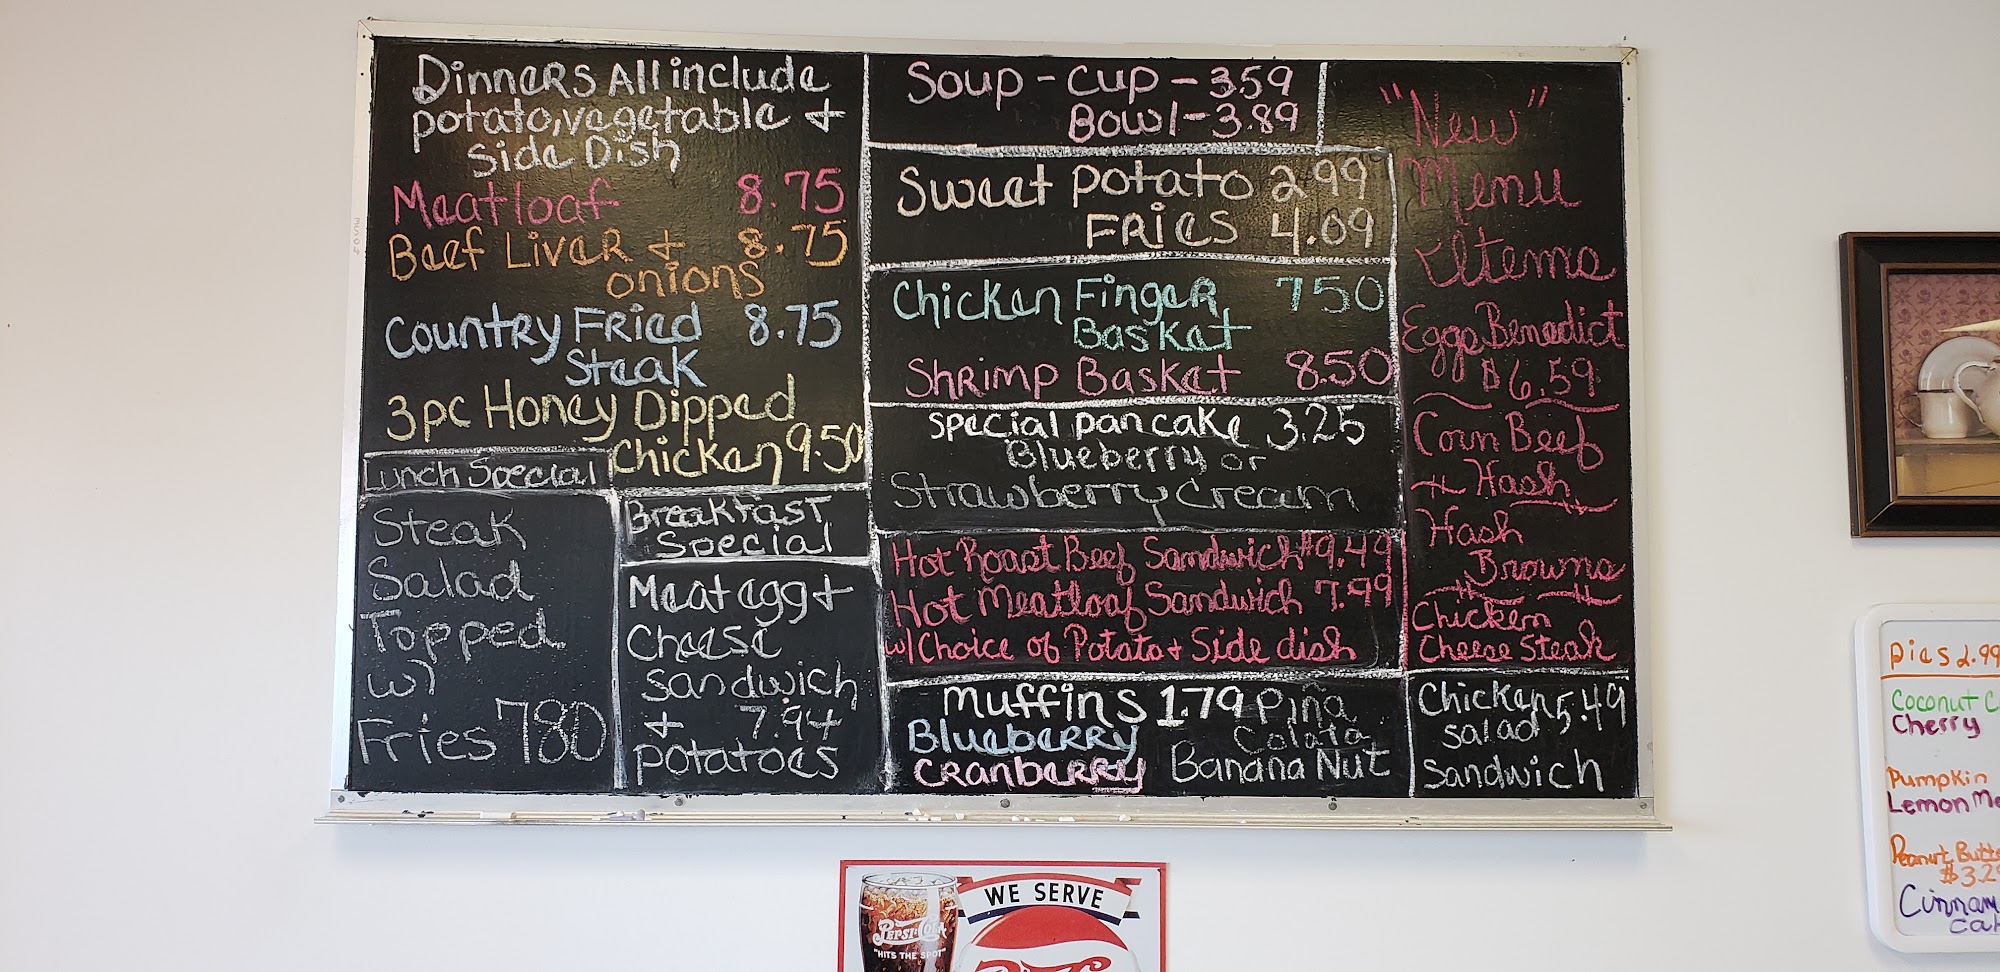 Dinners All include
potato, vegetable +
Side Dish
Meatloaf 8.75
Beef Liver + 8.75
onions
Country Fried 8.75
Steak
3pc Honey Dipped
Chicken 9.50
Lunch Special
Steak
Salad
Topped
w/
Fries 780
Breakfast
Special
Meat egg +
Cheese
Sandwich
+ 7.94
Potatoes
Soup - Cup - 3.59
Bowl - 3.89
Sweet Potato 2.99
Fries 4.09
Chicken Finger 750
Basket
Shrimp Basket 8.50
Special Pancake 3.25
Blueberry or
Strawberry Cream
Hot Roast Beef Sandwich $9.49
Hot Meatloaf Sandwich 7.99
w/ Choice of Potato + Side dish
Muffins 1.79 Piña
Colata
Blueberry
Cranberry Banana Nut
"New"
Menu
Items
Eggs Benedict
$6.59
Corn Beef
+ Hash
Hash
Browns
Chicken
Cheese Steak
Chicken 5.49
Salad
Sandwich
Pies 2.99
Coconut C
Cherry
Pumpkin
Lemon Me
Peanut Butte
$3.2
Cinnam
Cak
WE SERVE
PEPSI-COLA
"HITS THE SPOT"